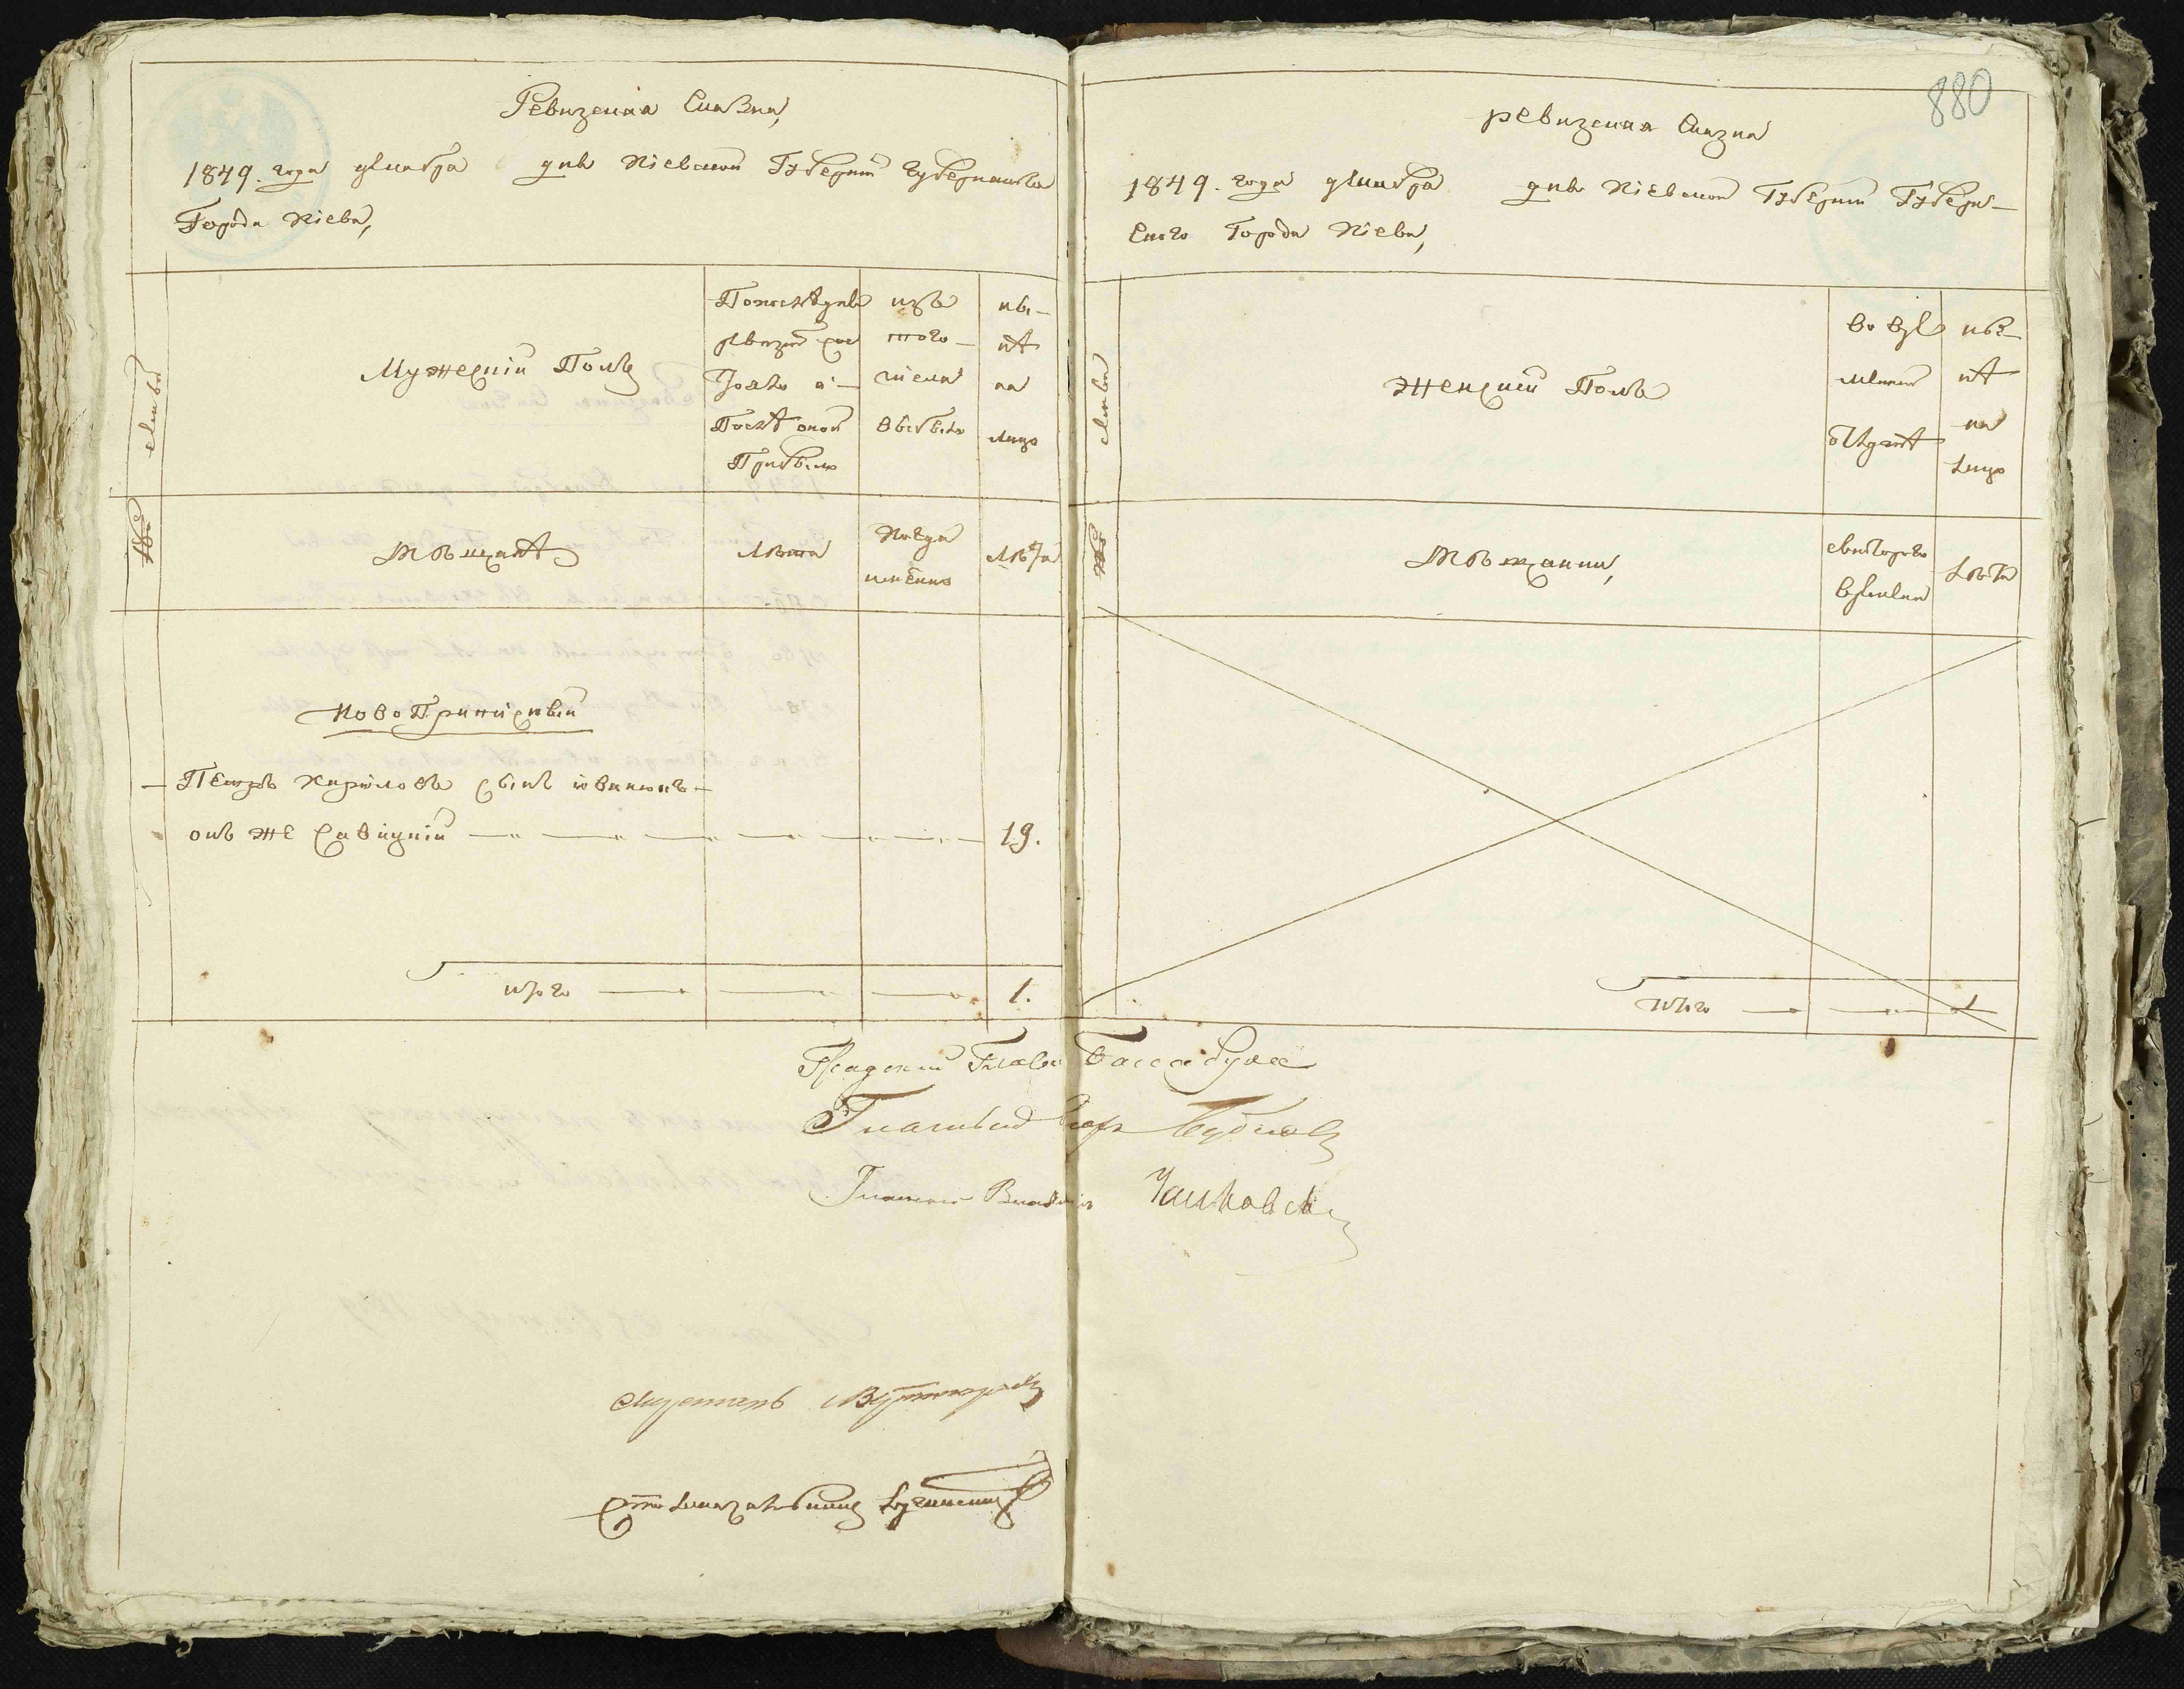 Ревизская Сказка,
1849. года декабря дня Кіевской Губерніи Губернскаго
Города Кіева,
семьи
Мужескій Полъ
По последней ревизіи состояло и после оной Прибыло
изъ того числа выбыло
ныне на лицо
№
Мѣщане
Лѣта
Когда именно
Лѣта
НовоПриписный
— Петръ Кириловъ сынъ
онъ же Савицкій — 19.
итого — 1.
880
ревизская Сказка
1849. года декабря дня Кіевской Губерніи Губерн-
скаго Города Кіева,
семьи
Женскій Полъ
во временной отлучке
ныне на лицо
№
Мѣщанки,
съ котораго времени
Лѣта
итого —
Градскій Глава
Гласный
Гласный